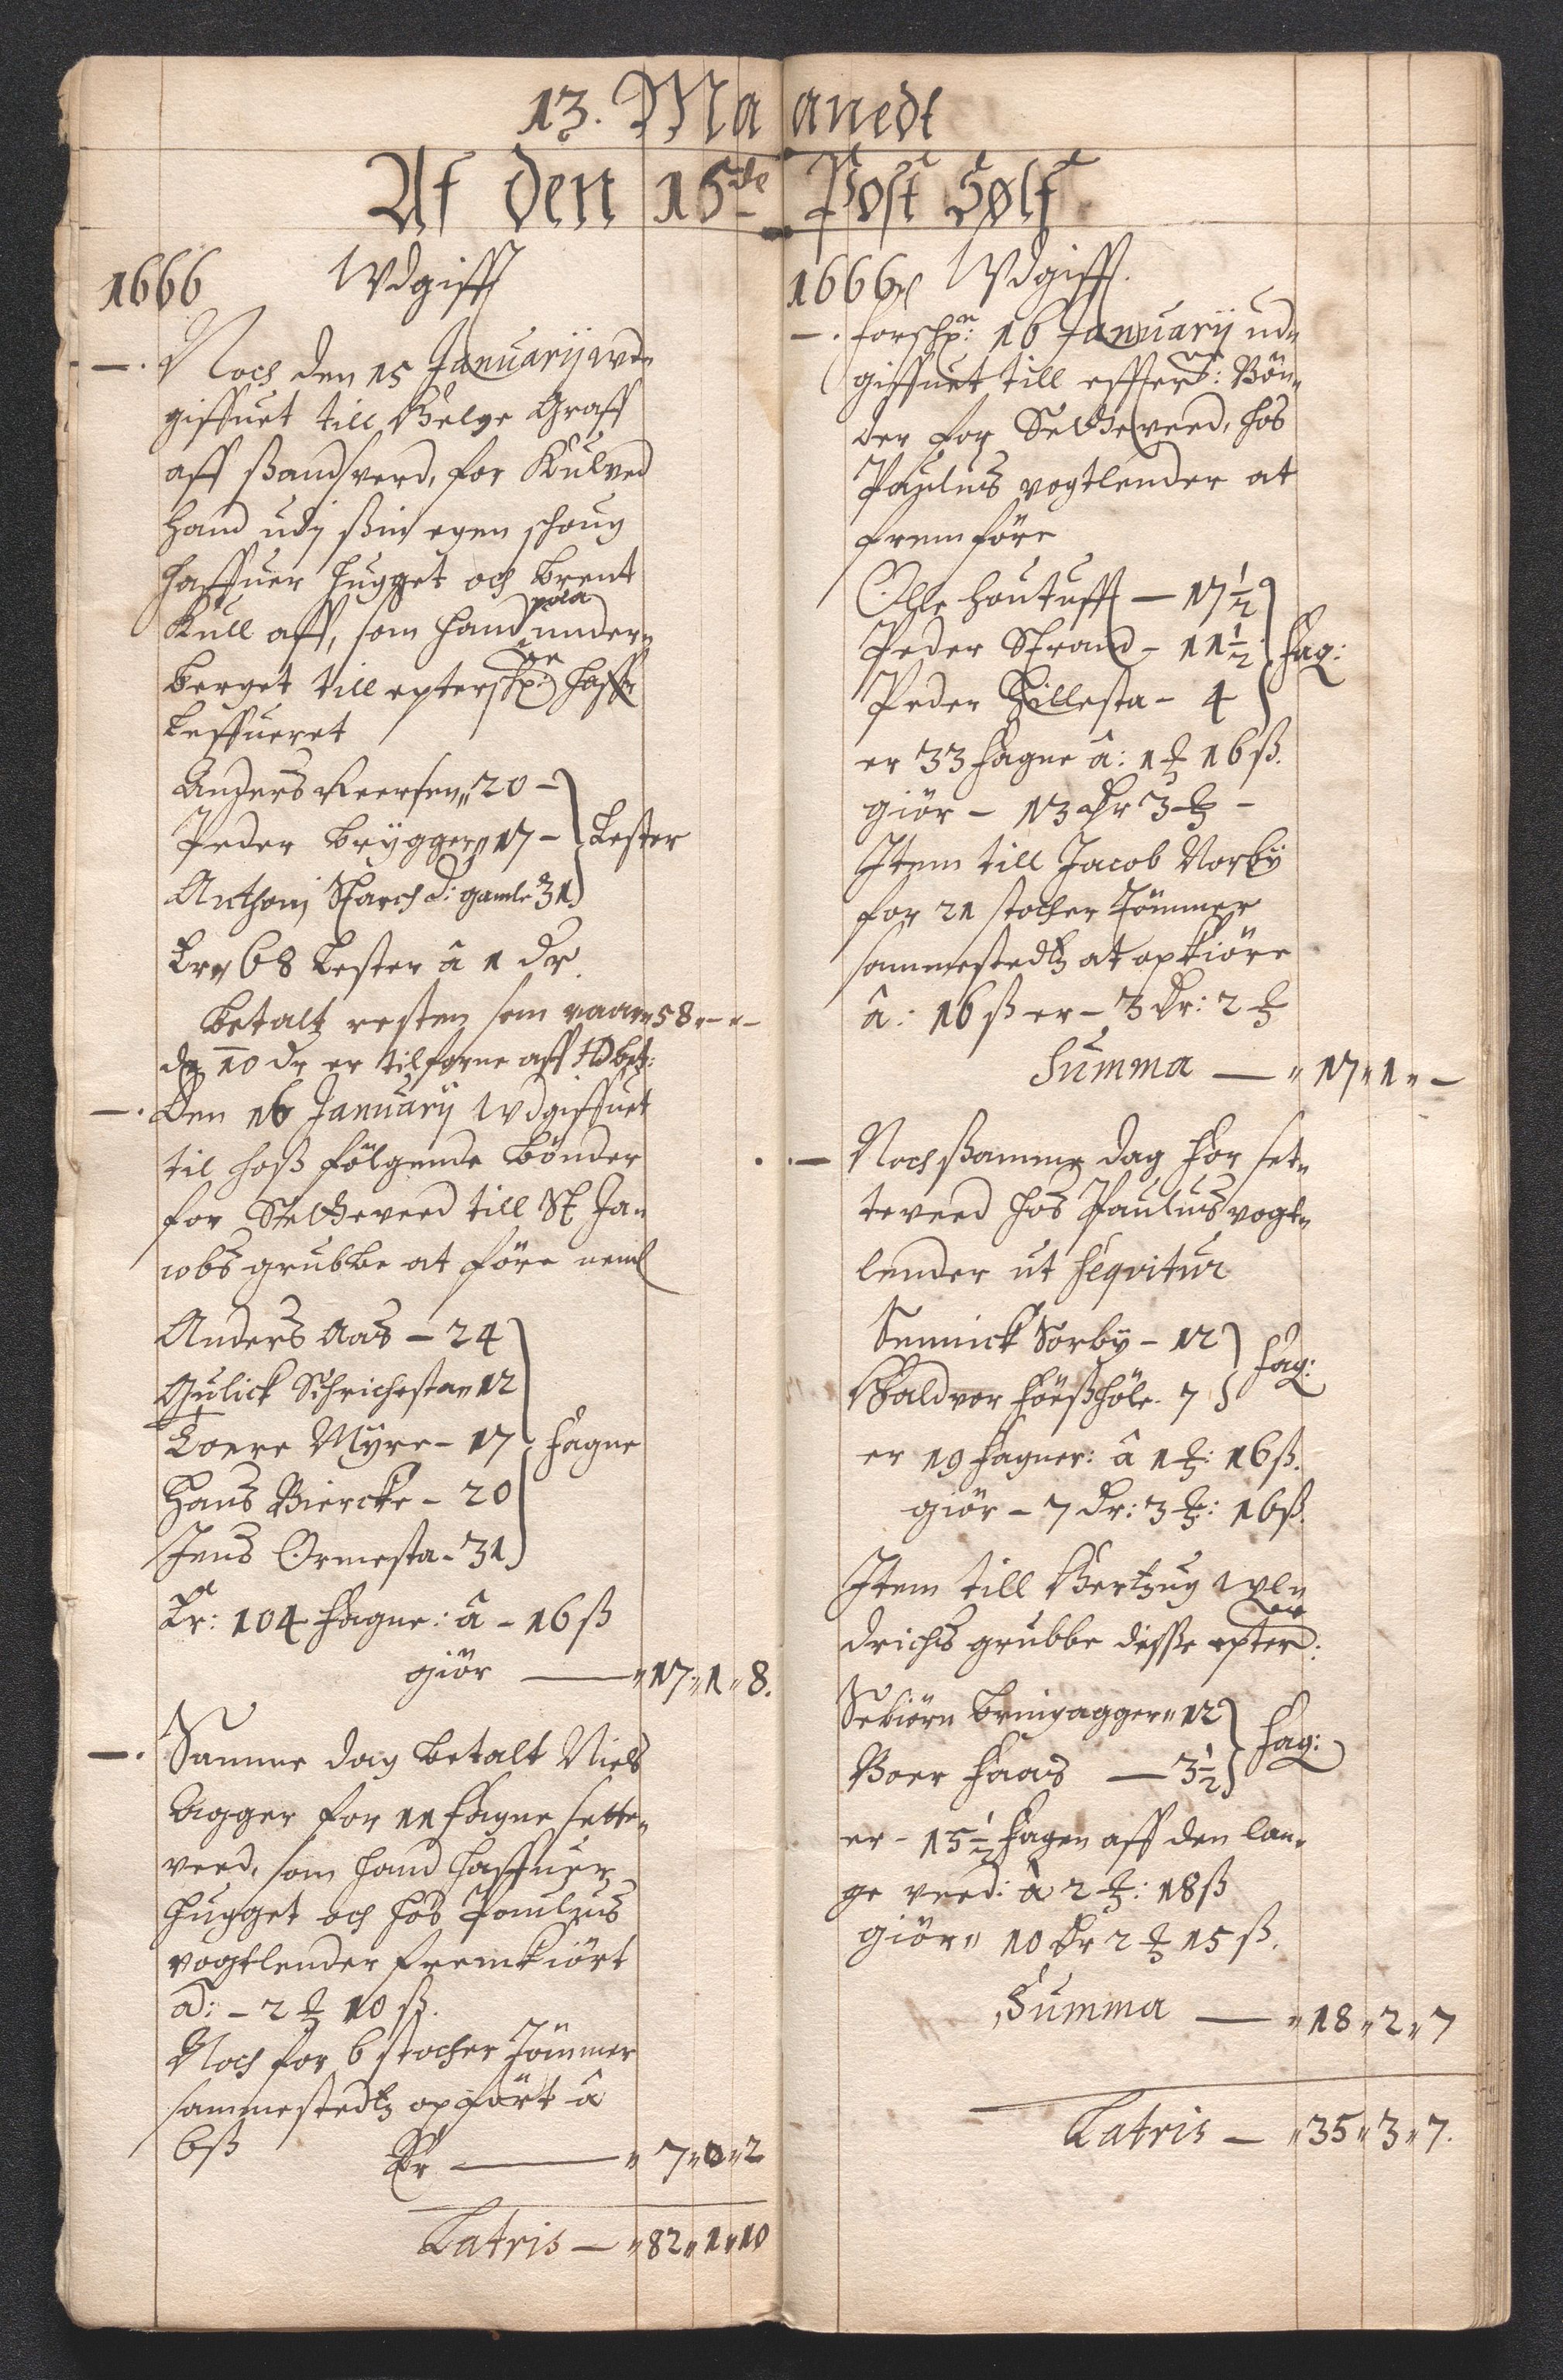 13. Maanedt
Af den 15de Post Sølf
1666 Wdgifft
Noch den 15 Januarij wd„
giffuet till Helge Graff
aff ßandsverd, for Kulved
hand udj ßin egen schoug
haffuer hugget och brent
Kull aff, som hand paa under„
berget till epterschne: haffr
leffueret
Anders Iversen„ 20 –
Peder brygger„ 17 – Lester
Anthonj Starch d: gamle 31
Er„ 68 Lester â 1 dr
betalt resten som vaar„ 58 „ – „ –
de 10 dr er tilforne aff HD bet:
–. Den 16 Januarij Wdgiffuet
til hoß fölgende bönder
for Setteveed till St Ja„
cobs grubbe at före neml
Anders Aas – 24
Gulick Schrichesta„ 12
Tovre Myre – 17 fagne
Hans Biercke – 20
Jens Ormesta – 31
Er: 104 fagne: â – 16 ß
giör — „ 17 „ 1 „ 8.
–. Samme dag betalt Niels
Agger for 11 fagne sette„
veed, som hand haffuer
hugget och hos Paulus
vogtlender fremkiört
â: – 2 ℔ 10 ß.
Noch for 6 stocher Tömmer
sammestedtz opfört â
6 ß Er — „ 7 „ 0 „ 2
Latris — „ 82 „ 1 „ 10
1666 Wdgifft.
–. forschne: 16 Januarij ud„
giffuet till effterne: Bön„
der for Setteveed, hos
Paulus vogtlender at
fremföre
Olle Houtuff — 17 1/2
Peder Strand – 11 1/2 fag:
Peder Hillesta – 4
er 33 fagne â: 1 ℔ 16 ß.
giör – 13 dr 3 ℔ –
Item till Jacob Norby
for 21 stocher Tömmer
sammestedtz at opkiöre
â: 16 ß er – 3 dr: 2 ℔
Summa — „ 17 „ 1 „ –
–. Noch ßamme dag for set„
teveed hos Paulus vogt„
lender ut seqvitur
Sennick Sorby – 12
Haldvor föeßhöle. 7 fag:
er 19 fagner: â 1 ℔: 16 ß.
giör – 7 dr: 3 ℔: 16 ß.
Item till Hertzug Wl„
drichs grubbe disse epterne:
Sebiörn bringagger„ 12
Boer faas — 3 1/2 fag:
er – 15 1/2 fagen aff den lan„
ge veed: â 2 ℔: 18 ß
giör„ 10 dr 2 ℔ 15 ß.
Summa — „ 18 „ 2 „ 7
Latris — „ 35 „ 3 „ 7.